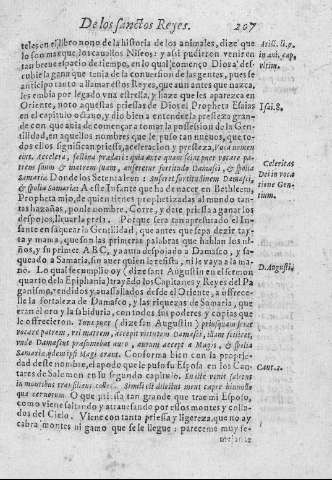 De los sanctos Reyes. 207
teles en el libro nono de la historia de los animales, dize que
lo son mas que los cauallos Nileos: y assi pudieron venir en
tan breue espacio de tiempo, en lo qual començo Dios a des-
cubir la gana que tenia de la conuersion de las gentes, pues se
anticipo tanto a llamar estos Reyes, que aun antes que nazca,
les embia por legado vna estrella, y haze que les aparezca en
Oriente, noto aquestas priessas de Dios el Propheta Esaias
en el capitulo octauo, y dio bien a entender la priessa gran-
de con que auia de començar a tomar la possession de la Gen-
tilidad, en aquellos nombres que le puso tan nueuos, que to-
dos ellos significan priessa, aceleracion y presteza, Voca nomen
eius, Accelera, festina prædari: quia ante quam sciat puer vocare pa-
trem suum & matrem suam, auferetur fortitudo Damasci, & spolia
Samariæ Donde los Setenta leen: Auferet fortitudinem Damasci,
& spolia Samariæ A este Infante que ha de nacer en Bethleem,
Propheta mio, de quien tienes prophetizadas al mundo tan-
tas hazañas, ponle nombre, Corre, y date priessa a ganar los
despojos, lleua la presa. Porque sera tan apresurado el In-
fante en saquear la Gentilidad, que antes que sepa dezir tay-
ta y mama, que son las primeras palabras que hablan los ni-
ños, y su primer A B C, ya aura despojado a Damasco, y sa-
queado a Samaria, sin auer quien le resista, ni le vaya a la ma-
no. Lo qual se cumplio oy (dize sant Augustin en el sermon
quarto de la Epiphania) trayẽdo los Capitanes y Reyes del Pa-
ganismo, rendidos y auassallados desde el Oriente, a offrecer-
le la fortaleza de Damasco, y las riquezas de Samaria, que
eran el oro y la sabiduria, con todos sus poderes y copias que
le offrecieron. Tunc puer (dize san Augustin) priusquam sciat
vocare patrem, vel matrem, accepit virtutem Damasci, illam scilicet,
vnde Damascus præsumebat auro, aurum accepit a Magis, & spolia
Samariæ, idem ipsi Magi erant. Conforma bien con la proprie-
dad deste nombre, el apodo que le puso su Esposa en los Can-
tares de Salomon en lo segundo capitulo. En iste venit saliens
in montibus transiliens colles. Similis est dilectus meus capreæ hinnulo
que ceruorum. O que priessa tan grande que trae mi Esposo,
como viene saltando y atrauessando por essos montes y colla-
dos del Cielo. Viene con tanta priessa y ligereza, que no ay
cabra montes ni gamo que se le yguele: pareceme muy se-
Aristi. li. 9.
in ani. cap.
vltim.
Isai. 8.
Celeritas
Dei in voca
tione Gen-
tium.
D. Augusti.
Cant. 2.